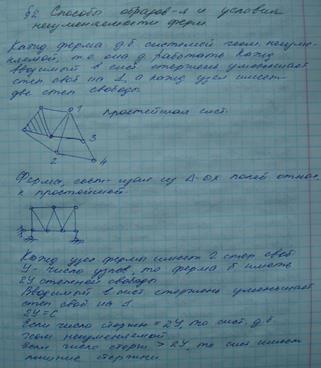 §2 Способы образов-я и условия
неизменяемости ферм.
Кажд ферма д.б системой геом. неизме-
няемой, т.е она д. работать. Кажд
вводимый в сист стержень уменьшает
степ своб на 1, а кажд узел имеет
две степ свободы.
простейшая сист.
1
3
2
4
Ферма, сост-щая из Δ-ых полей относ.
к простейшей.
Кажд узел фермы имеет 2 степ своб
У - число узлов, то ферма б иметь
2У степеней свободы
Вводимый в сист. стержень уменьшает
степ своб на 1.
2У=С
Если число стержн = 2У, то сист. д.б
геом неизменяемой.
Если число стерж > 2У, то сист имеет
лишние стержни